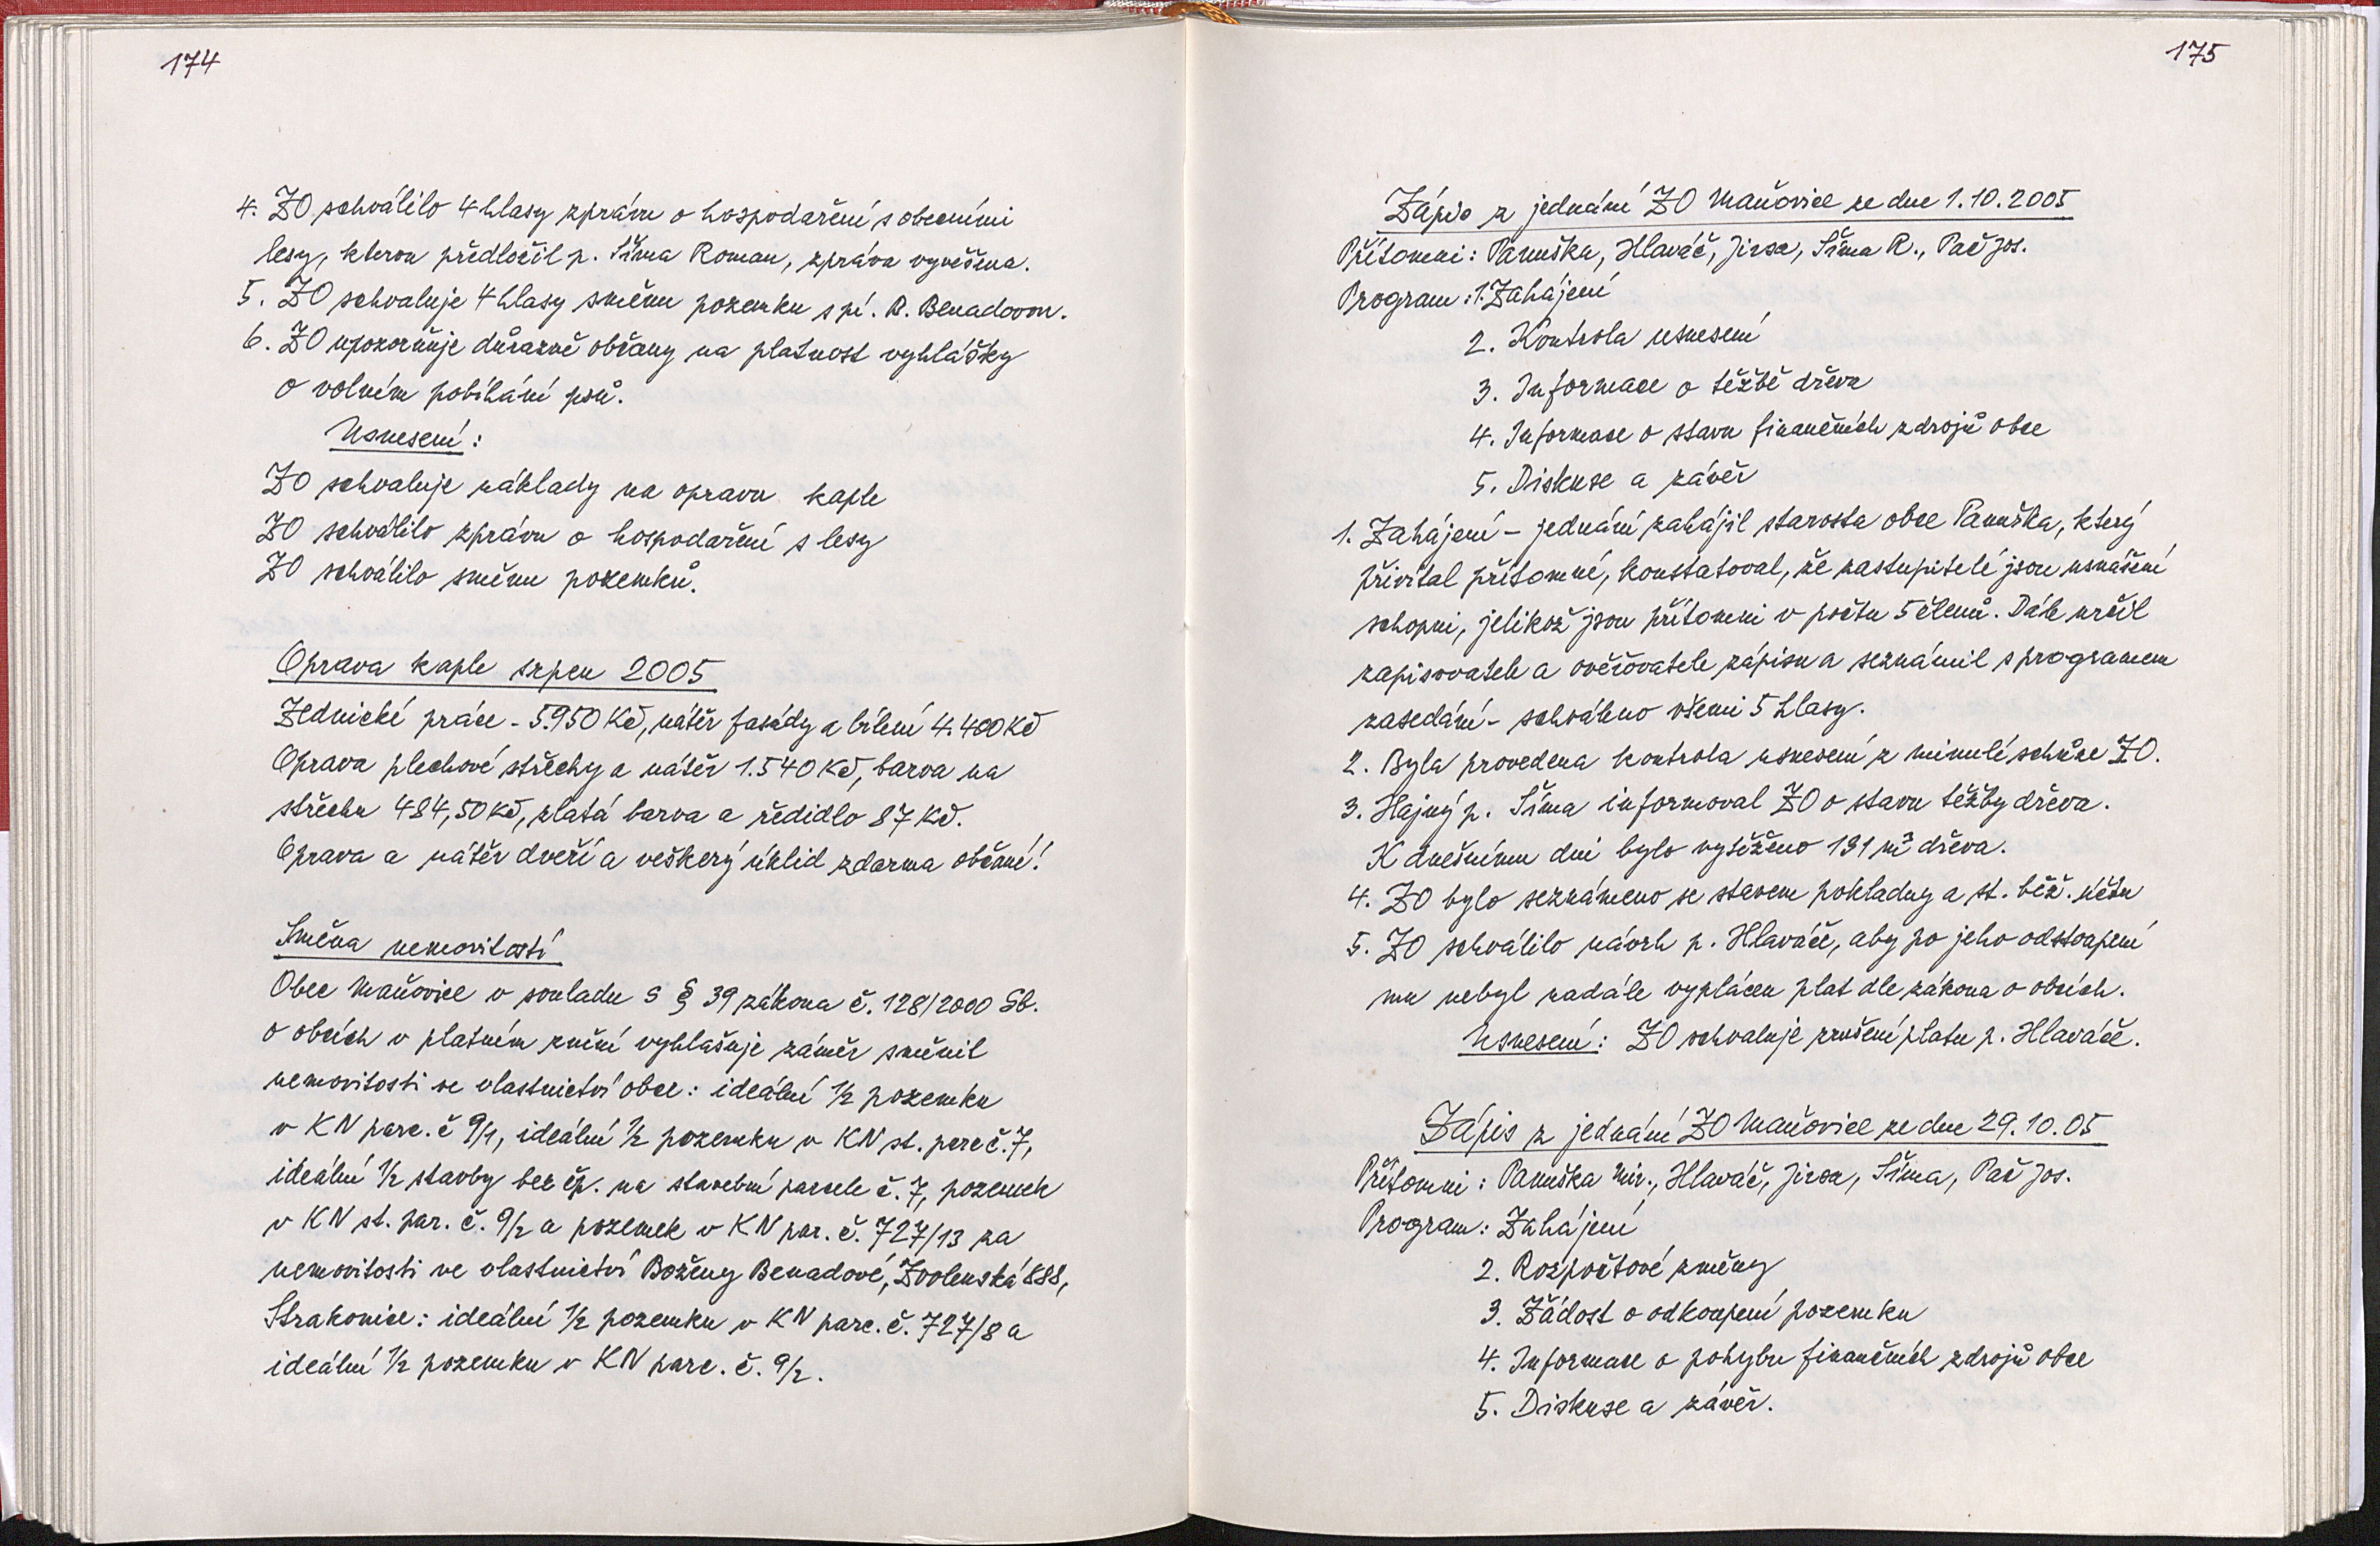 174
4. ZO schválilo 4 hlasy zprávu o hospodaření s obecními
lesy, kterou předložil p. Šíma Roman, zpráva vyvěšena.
5. ZO schvaluje 4 hlasy směnu pozemku s pí. B. Benadovou.
6. ZO upozorňuje důrazně občany na platnost vyhlášky
o volném pobíhání psů.
Usnesení:
ZO schvaluje náklady na opravu kaple
ZO schválilo zprávu o hospodaření s lesy
ZO schválilo směnu pozemků.
Oprava kaple srpen 2005
Zednické práce - 5.950 Kč, nátěr fasády a bílení 4.400 Kč
Oprava plechové střechy a nátěr 1.540 Kč, barva na
střechu 484,50 Kč, zlatá barva a ředidlo 87 Kč.
Oprava a nátěr dveří a veškerý úklid zdarma občané!
Směna nemovitostí
Obec Maňovice v souladu s § 39 zákona č. 128/2000 Sb.
o obcích v platném znění vyhlašuje záměr směnit
nemovitosti ve vlastnictví obce: ideální 1/2 pozemku
v KN parc. č 9/1, ideální 1/2 pozemku v KN st. parc č. 7,
ideální 1/2 stavby bez čp. na stavební parcele č. 7, pozemek
v KN st. par. č. 9/2 a pozemek v KN par. č. 727/13 za
nemovitosti ve vlastnictví Boženy Benadové, Zvolenská 888,
Strakonice: ideální 1/2 pozemku v KN parc. č. 727/8 a
ideální 1/2 pozemku v KN parc. č. 9/2.
175
Zápis z jednání ZO Maňovice ze dne 1.10.2005
Přítomni: Panuška, Hlaváč, Jirsa, Šíma R., Pač Jos.
Program: 1. Zahájení
2. Kontrola usnesení
3. Informace o těžbě dřeva
4. Informace o stavu finančních zdrojů obce
5. Diskuse a závěr
1. Zahájení - jednání zahájil starosta obce Panuška, který
přivítal přítomné, konstatoval, že zastupitelé jsou usnášení
schopni, jelikož jsou přítomni v počtu 5 členů. Dále určil
zapisovatele a ověřovatele zápisu a seznámil s programem
zasedání - schváleno všemi 5 hlasy.
2. Byla provedena kontrola usnesení z minulé schůze ZO.
3. Hajný p. Šíma informoval ZO o stavu těžby dřeva.
K dnešnímu dni bylo vytěženo 191 m³ dřeva.
4. ZO bylo seznámeno se stavem pokladny a st. běž. účtu
5. ZO schválilo návrh p. Hlaváče, aby po jeho odstoupení
mu nebyl nadále vyplácen plat dle zákona o obcích.
Usnesení: ZO schvaluje zrušení platu p. Hlaváče.
Zápis z jednání ZO Maňovice ze dne 29.10.05
Přítomni: Panuška Mir., Hlaváč, Jirsa, Šíma, Pač Jos.
Program: Zahájení
2. Rozpočtové změny
3. Žádost o odkoupení pozemku
4. Informace o pohybu finančních zdrojů obce
5. Diskuse a závěr.